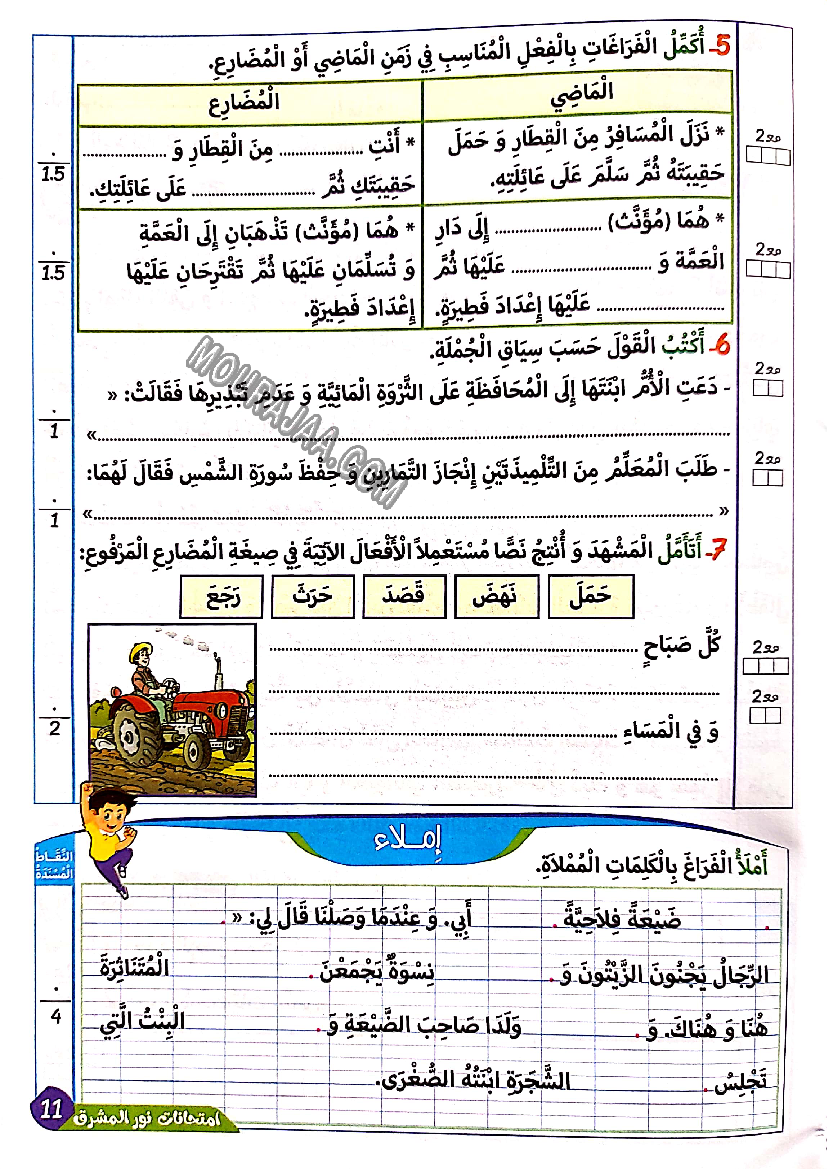 5- أُكَمِّلُ الْفَرَاغَاتِ بِالْفِعْلِ الْمُنَاسِبِ فِي زَمَنِ الْمَاضِي أَوْ الْمُضَارِعِ.
الْمَاضِي
الْمُضَارِع
مع2
* نَزَلَ الْمُسَافِرُ مِنَ الْقِطَارِ وَ حَمَلَ
حَقِيبَتَهُ ثُمَّ سَلَّمَ عَلَى عَائِلَتِهِ.
* أَنْتِ .................... مِنَ الْقِطَارِ وَ ....................
حَقِيبَتَكِ ثُمَّ .............................. عَلَى عَائِلَتِكِ.
1.5
مع2
* هُمَا (مُؤَنَّث) ......................... إِلَى دَارِ
الْعَمَّة وَ ................................. عَلَيْهَا ثُمَّ
.............................. عَلَيْهَا إِعْدَادَ فَطِيرَةٍ.
* هُمَا (مُؤَنَّث) تَذْهَبَانِ إِلَى الْعَمَّةِ
وَ تُسَلِّمَانِ عَلَيْهَا ثُمَّ تَقْتَرِحَانِ عَلَيْهَا
إِعْدَادَ فَطِيرَةٍ.
1.5
6- أَكْتُبُ الْقَوْلَ حَسَبَ سِيَاقِ الْجُمْلَةِ.
مع2
- دَعَتِ الْأُمُّ ابْنَتَهَا إِلَى الْمُحَافَظَةِ عَلَى الثَّرْوَةِ الْمَائِيَّةِ وَ عَدَمِ تَبْذِيرِهَا فَقَالَتْ: «
..................................................»
1
مع2
- طَلَبَ الْمُعَلِّمُ مِنَ التِّلْمِيذَتَيْنِ إِنْجَازَ التَّمَارِينِ وَ حِفْظَ سُورَةِ الشَّمْسِ فَقَالَ لَهُمَا:
« ..................................................»
1
MOURAJAA.COM
7- أَتَأَمَّلُ الْمَشْهَدَ وَ أُنْتِجُ نَصًّا مُسْتَعْمِلاً الْأَفْعَالَ الآتِيَةَ فِي صِيغَةِ الْمُضَارِعِ الْمَرْفُوعِ:
حَمَلَ نَهَضَ قَصَدَ حَرَثَ رَجَعَ
مع2
كُلَّ صَبَاحٍ ..................................................
..................................................
مع2
وَ فِي الْمَسَاءِ ..................................................
..................................................
2
إمـلاء
النِّقَاطُ
الْمُسْنَدَةُ
أَمْلَأُ الْفَرَاغَ بِالْكَلِمَاتِ الْمُمْلاَةِ.
. ضَيْعَةً فِلاَحِيَّةً . أَبِي. وَ عِنْدَمَا وَصَلْنَا قَالَ لِي: « .
الرِّجَالُ يَجْنُونَ الزَّيْتُونَ وَ . نِسْوَةٌ يَجْمَعْنَ . الْمُتَنَاثِرَةَ
هُنَا وَ هُنَاكَ. وَ . وَلَدَا صَاحِبَ الضَّيْعَةِ وَ . الْبِنْتُ الَّتِي
تَجْلِسُ . الشَّجَرَةِ ابْنَتُهُ الصُّغْرَى.
4
امتحانات نور المشرق
11